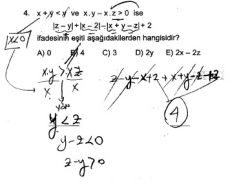 4. x + y < y ve x.y - x.z > 0 ise
|z - y| + |x - 2| - |x + y - z| + 2
ifadesinin eşiti aşağıdakilerden hangisidir?
A) 0 B) 4 C) 3 D) 2y E) 2x - 2z
x<0
x.y > xz
x x
y < z
y-z<0
z-y>0
z - y - x + 2 + x + y - z + 2
4